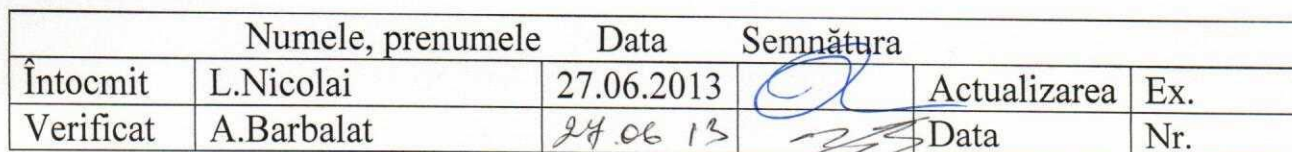 Numele, prenumele Data Semnătura
Întocmit L.Nicolai 27.06.2013 Actualizarea Ex.
Verificat A.Barbalat 27.06 13 Data Nr.